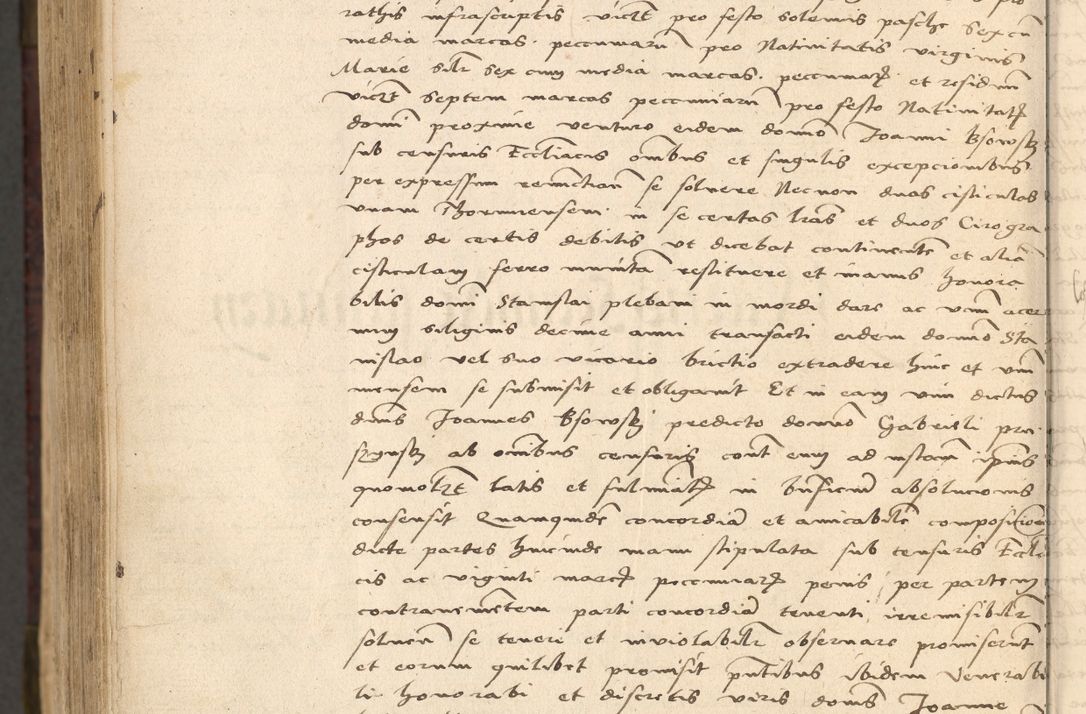 rathis infrascriptis vict pro festo solemis pasche sex cu
media marcas peccuniaru pro Nativitatis virginis
Marie silr sex cum media marcas peccuniaru et residuu
vict septem marcas peccuniaru pro festo Nativitatis
domi proxime venturo eidem domo Joanni Bsowsky
sub censuris Eccliacis omibus et singulis excepcionibus
per expressum renuctian se solvere Necnon duas cisticulas
unam Thoruniensem in se certas lras et duos Cirogra
phos de certis debitis ut dicebat continente et alia
cisticulam ferro munita restituere et manus honora
bilis domi Stanislai plebani in mordi dare ac unu acer
num siliginis decime anni transacti eidem domo Sta
nislao vel suo vicario brictio extradere hinc et unu
mensem se submisit et obligavit Et in eam vim dictus
dnus Joannes Bsowsky predicto domo Gabrieli pra
ab omibus censuris cont eum ad instam ipius
quomolzt latis et fulminatis in bnficiu absolucionis
consensit Quamquide concordia et amicabile compositione
dicte partes hincinde manu stipulata sub censuris Eccli
cis ac viginti marcis peccuniaru penis per partem
contravenietem parti concordia tenenti irremisibilr
solven se tenere et inviolabilr observare promiserut
et eorum quilibet promisit pntibus ibidem venerabi
li honorabi et discretis viris domis Joanne